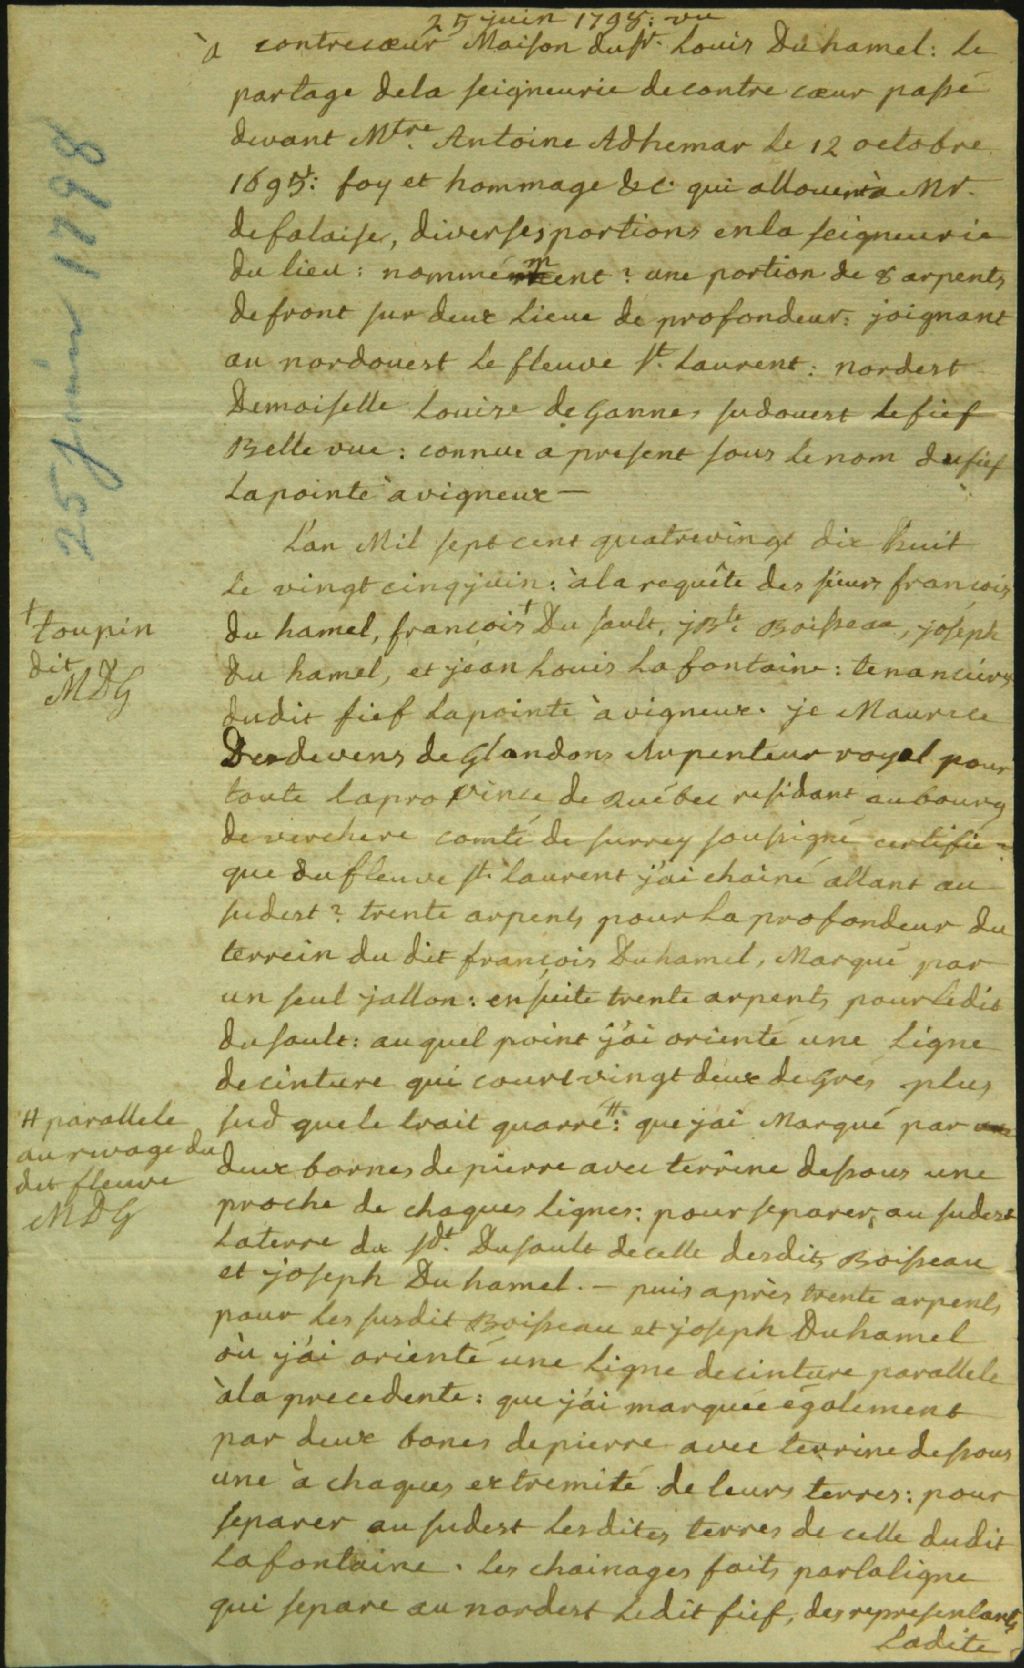 25 juin 1798: vu
à contrecœur Maison du Sr. Louis Duhamel: le
partage dela seigneurie decontre cœur passé
devant Mtre. Antoine Adhemar le 12 octobre
1695: foy et hommage &c: qui allouent à Mr.
defalaise, diverses portions enla seigneurie
du lieu: nommément? une portion de 8 arpents
defront sur deux lieue de profondeur: joignant
au nordouest le fleuve St. Laurent: nordest
Demoiselle Louise de Gannes sudouest lefief
Belle vue: connue a present sous le nom dufief
lapointe à vigneux —
L'an Mil sept cent quatrevingt dix huit
le vingt cinq juin: àla requête des sieurs françois
du hamel, francois† Du sault, jBte: Boisseau, joseph
Du hamel, et jéan Louis Lafontaine: tenanciers
dudit fief Lapointe à vigneux. je Maurice
Desdevens de Glandons Arpenteur royal pour
toute laprovince de Québec residant aubourg
de verchere comté de surrey soussigné certifie
que dufleuve St. Laurent j'ai chainé allant au
sudest? trente arpents pour la profondeur du
terrein du dit françois Duhamel, Marqué par
un seul jallon: ensuite trente arpents pour ledit
dusault: auquel point j'ai orienté une Ligne
decinture qui court vingt deux degrés plus
sud que le trait quarré #: que j'ai Marqué par
deux bornes de pierre avec terrine dessous une
proche de chaques lignes: pour separer, au sudest
la terre du sdt. Dusault decelle desdits Boisseau
et joseph Duhamel. — puis après trente arpents
pour les susdit Boisseau et joseph Duhamel
où j'ai orienté une ligne decinture parallele
àla precedente: que j'ai marquée également
par deux bones depierre avec terrine dessous
une à chaques extremité de leurs terres: pour
separer au sudest lesdites terres de celle dudit
Lafontaine. les chainages faits parlaligne
qui separe au nordest ledit fief, des representants
Ladite
25 juin 1798
† toupin
dit
MDG
# parallele
au rivage du
dit fleuve
MDG